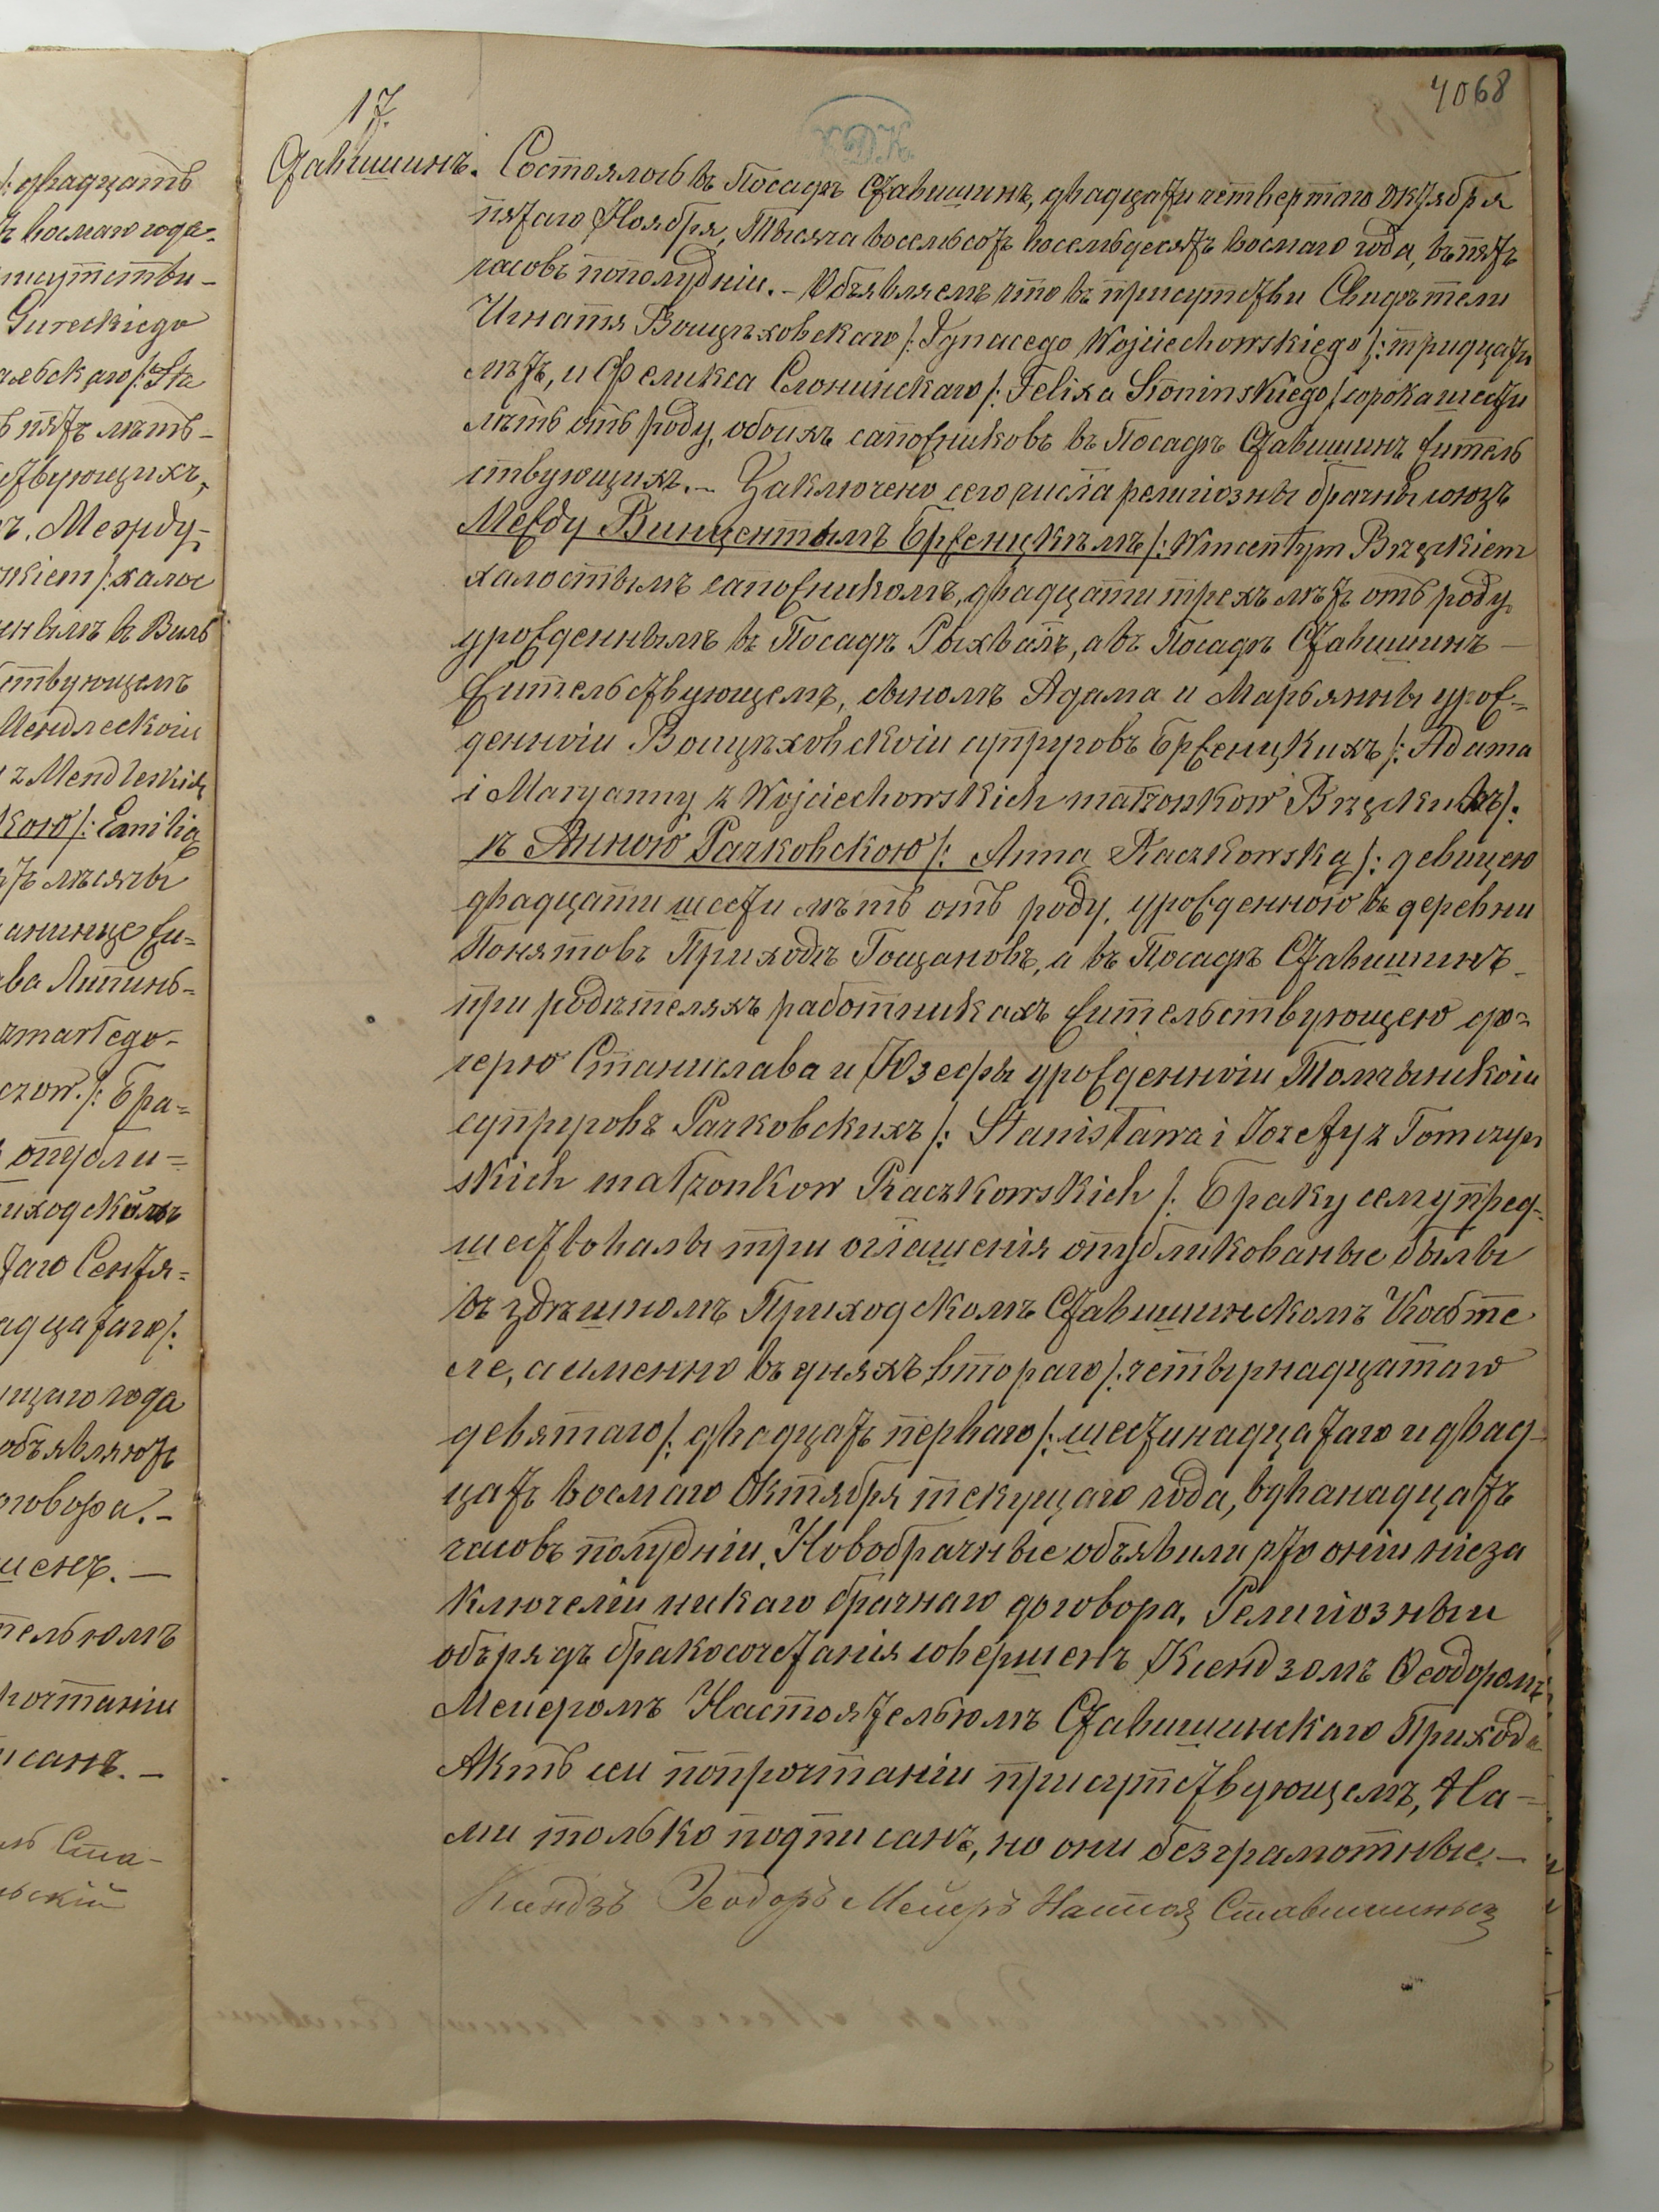 4068
17.
Ставишинъ. Состоялось въ Посадѣ Ставишинъ, двадцати четвертого Октября
пятаго Ноября, Тысяча восемьсотъ восемьдесятъ восмаго года, въ пять
часовъ пополудніи. – Объявляемъ что въ присутстви Свидѣтели
Игнатя Вощѣховскаго /: Ignacego Wojciechowskiego /: тридцати
лѣтъ, и Феликса Слонинскаго /: Felixa Słoninskiego / сорока шести
лѣтъ отъ роду, обоихъ сапожниковъ въ Посадѣ Ставишинъ житель
ствующихъ. – Заключено сего числа религіозны брачны союзъ
Между Винцентымъ Брженцкѣмъ /: Wincentym Brzęckiem
халостымъ сапожникомъ, двадцати трехъ лѣтъ отъ роду
урожденнымъ въ Посадѣ Рыхвалъ, а въ Посадѣ Ставишинъ –
жительствующемъ, сыномъ Адама и Марьянны урож=
денноіи Вощѣховскоіи супруговъ Брженцкихъ /: Adama
i Maryanny z Wojciechowskich małzonkow Brzęckich /:
и Анною Рачковскою /: Anną Raczkowską /: девицею
двадцати шести лѣтъ отъ роду, урожденною въ деревни
Понятовъ Приходѣ Гощановъ, а въ Посадѣ Ставишинъ –
при родѣтеляхъ работникахъ жительствующею до=
черю Станислава и Юзефы урожденноіи Томчыцкоіи
супруговъ Рачковскихъ /: Stanisława i Jozefy z Tomczyc
skich małzonkow Raczkowskich /: Браку сему пред=
шествовалы три оглашенія опубликованые былы
въ здѣшномъ Приходскомъ Ставишинскомъ Костѣ
ле, а именно въ дняхъ втораго /: четырнадцатаго
девятаго /: двадцатъ перваго /: шестинадцатаго и двад–
цатъ восмаго Октября текущаго года, вдванадцатъ
часовъ полудніи. Новобрачные объявили что оніи ніеза
ключеліи никаго брачнаго договора. Религіозныи
обърядъ бракосочетанія совершенъ Ксендзомъ Ѳеодоромъ
Меиеромъ Настоятельюмъ Ставишинскаго Прихода
Актъ сеи попрочтаніи присутствующемъ, На=
ми только подписанъ, но они безграмотные. –
Ксендзъ Теодоръ Меиеръ Настоя Ставишинск